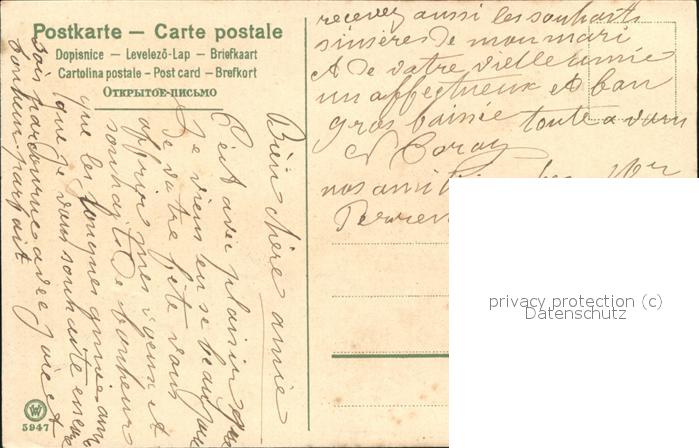 Postkarte — Carte postale
Dopisnice — Levelező-Lap — Briefkaart
Cartolina postale - Post card - Brefkort
Открытое-письмо
Bièn chère amie
C'est avec plaisir que
je viens en se beau jour
de votre fête vous
offrir mes vœux et
souhaits de bonheur
que les
que je vous souhaite
soit parcourue avec joie et
bonheur parfait
recevez aussi les souhaits
sinsères de mon mari
et de votre vielle amie
un affectueux et bon
gros baisée toute a vous
nos amitiés
5947
privacy protection (c)
Datenschutz